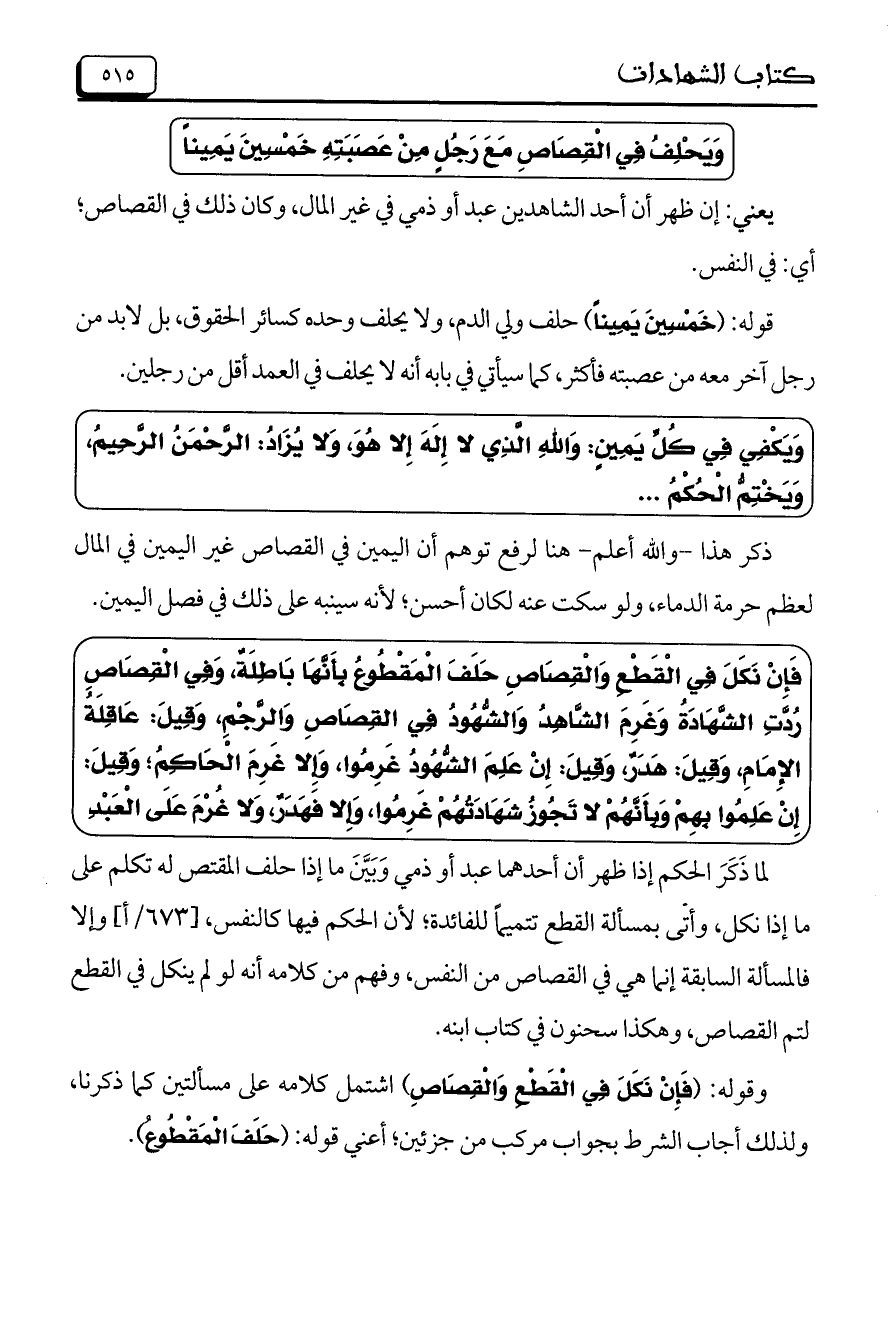 كتاب الشهادات
٥١٥
وَيَحْلِفُ فِي الْقِصَاصِ مَعَ رَجُلٍ مِنْ عَصَبَتِهِ خَمْسِينَ يَمِيناً
يعني: إن ظهر أن أحد الشاهدين عبد أو ذمي في غير المال، وكان ذلك في القصاص؛
أي: في النفس.
قوله: (خَمْسِينَ يَمِيناً) حلف ولي الدم، ولا يحلف وحده كسائر الحقوق، بل لابد من
رجل آخر معه من عصبته فأكثر، كما سيأتي في بابه أنه لا يحلف في العمد أقل من رجلين.
وَيَكْفِي فِي كُلِّ يَمِينٍ: وَاللهِ الَّذِي لا إِلَهَ إِلا هُوَ، وَلا يُزَادُ: الرَّحْمَنُ الرَّحِيمُ،
وَيَخْتِمُ الْحُكْمُ ...
ذكر هذا -والله أعلم- هنا لرفع توهم أن اليمين في القصاص غير اليمين في المال
لعظم حرمة الدماء، ولو سكت عنه لكان أحسن؛ لأنه سينبه على ذلك في فصل اليمين.
فَإِنْ نَكَلَ فِي الْقَطْعِ وَالْقِصَاصِ حَلَفَ الْمَقْطُوعُ بِأَنَّهَا بَاطِلَةٌ، وَفِي الْقِصَاصِ
رُدَّتِ الشَّهَادَةُ وَغَرِمَ الشَّاهِدُ وَالشُّهُودُ فِي القِصَاصِ وَالرَّجْمِ، وَقِيلَ: عَاقِلَةُ
الإِمَامِ، وَقِيلَ: هَدَرٌ، وَقِيلَ: إِنْ عَلِمَ الشُّهُودُ غَرِمُوا، وَإِلا غَرِمَ الْحَاكِمُ؛ وَقِيلَ:
إِنْ عَلِمُوا بِهِمْ وَبِأَنَّهُمْ لا تَجُوزُ شَهَادَتُهُمْ غَرِمُوا، وَإِلا فَهَدَرٌ، وَلا غُرْمَ عَلَى الْعَبْدِ
لما ذَكَرَ الحكم إذا ظهر أن أحدهما عبد أو ذمي وَبَيَّنَ ما إذا حلف المقتص له تكلم على
ما إذا نكل، وأتى بمسألة القطع تتميماً للفائدة؛ لأن الحكم فيها كالنفس، [٦٧٣/أ] وإلا
فالمسألة السابقة إنما هي في القصاص من النفس، وفهم من كلامه أنه لو لم ينكل في القطع
لتم القصاص، وهكذا سحنون في كتاب ابنه.
وقوله: (فَإِنْ نَكَلَ فِي الْقَطْعِ وَالْقِصَاصِ) اشتمل كلامه على مسألتين كما ذكرنا،
ولذلك أجاب الشرط بجواب مركب من جزئين؛ أعني قوله: (حَلَفَ الْمَقْطُوعُ).